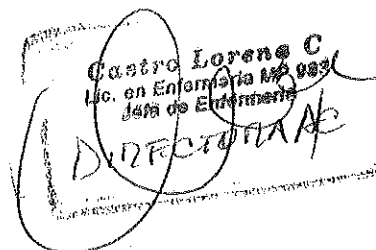 Castro Lorena C
Lic. en Enfermería MP 983
Jefa de Enfermería
DIRECTORA A/C